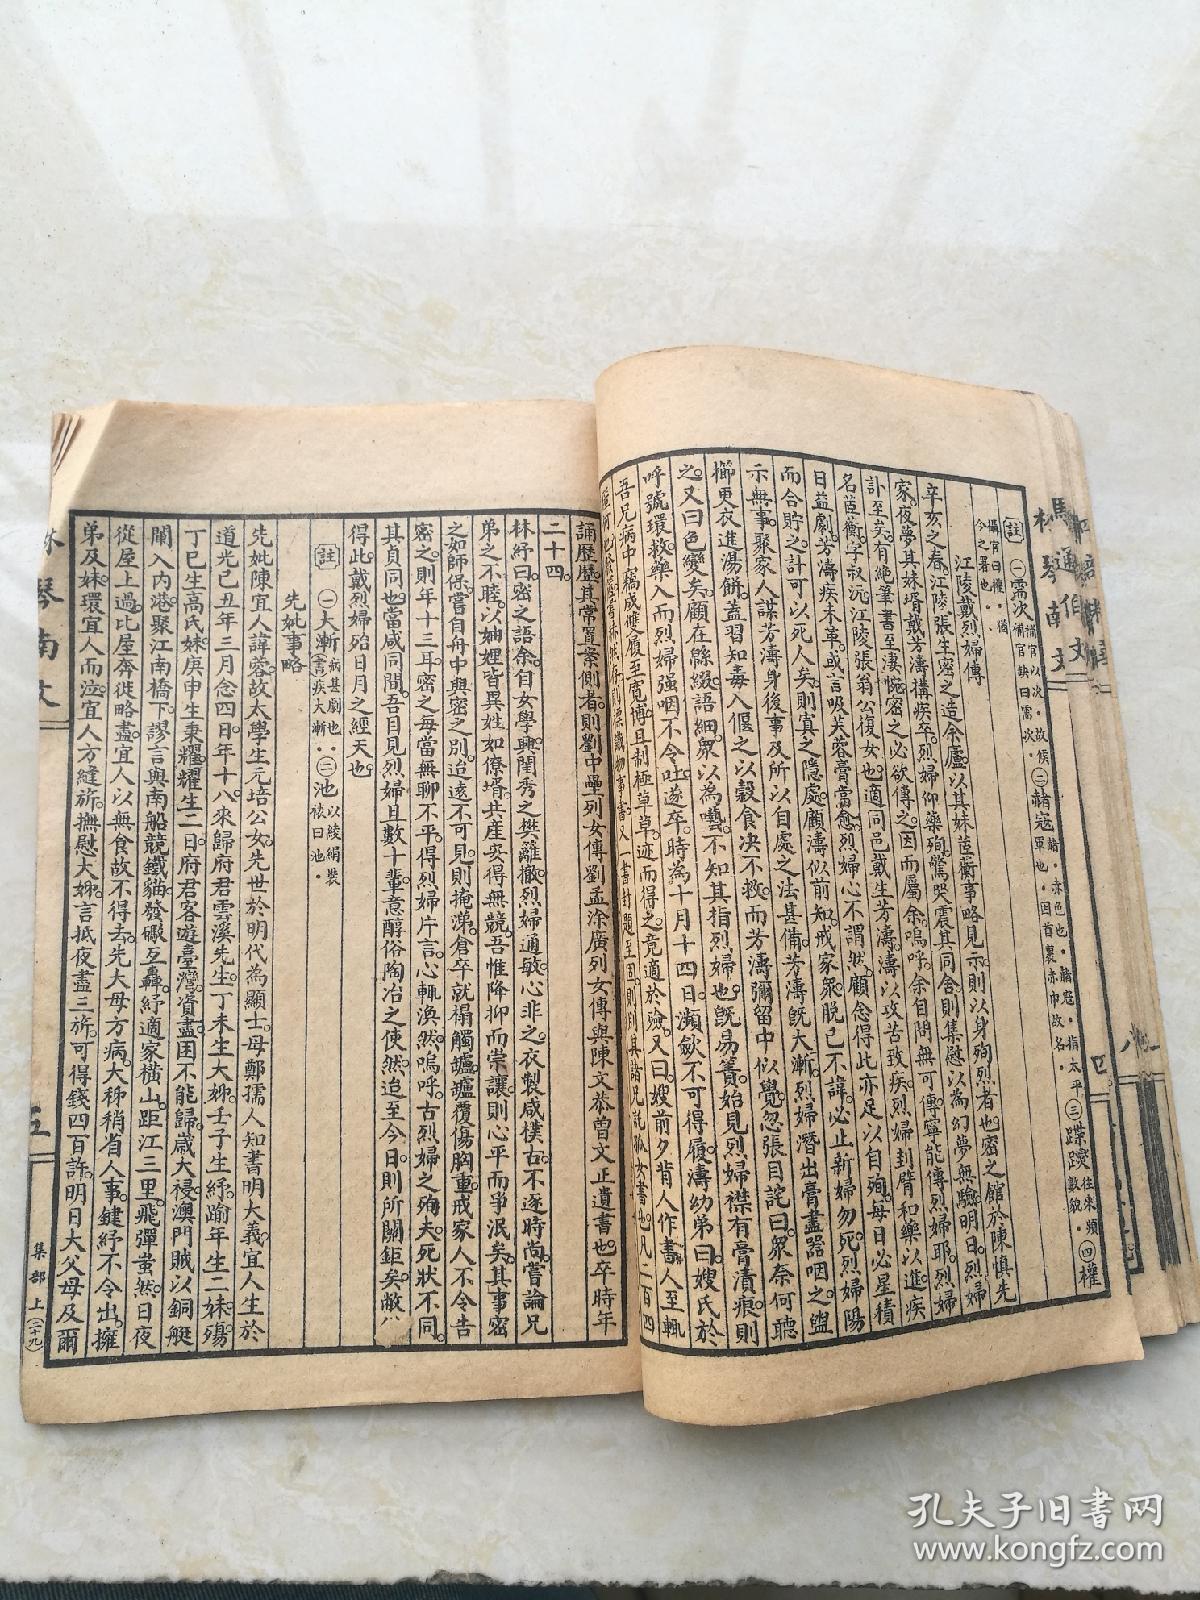 【註】㊀需次補官以次。故候補官缺曰需次。㊁赭寇赭。赤色也。赭寇。指太平軍也。因首裹赤巾故名。㊂蹀躞往來頻數貌。㊃權
攝官曰權。猶今之署也。
江陵戴烈婦傳
辛亥之春。江陵張生密之造余廬。以其妹茝蘅事略見示。則以身殉烈者也。密之館於陳慎先
家。夜夢其妹壻戴芳濤搆疾卒。烈婦仰藥殉。驚哭震其同舍。則集慰以為幻夢無驗。明日。烈婦
訃至矣。有絕筆書至淒惋。密之必欲傳之。因而屬余。嗚呼。余自問無可傳。寧能傳烈婦耶。烈婦
名茝蘅。字叔沅。江陵張翁公復女也。適同邑戴生芳濤。濤以攻苦致疾。烈婦刲臂和藥以進。疾
日益劇。芳濤疾未革。或言吸芙蓉膏當愈。烈婦心不謂然。顧念得此亦足以自殉。每日必星積
而合貯之。計可以死人矣。則寘之隱處。顧濤似前知。戒家眾脫己不諱。必止新婦勿死。烈婦陽
示無事。聚家人謀芳濤身後事及所以自處之法甚備。芳濤既大漸。烈婦潛出膏盡器咽之。盥
櫛更衣進湯餅。蓋習知毒入偃之以穀食決不救。而芳濤彌留中似覺。忽張目詫曰。眾奈何聽
之。又曰色變矣。顧在緜綴語細。眾以為囈。不知其指烈婦也。既易簀。始見烈婦襟有膏漬痕。則
呼號環救。藥入而烈婦強咽不令吐。遂卒。時為十月十四日。瀕斂不可得履。濤幼弟曰。嫂氏於
吾兄病中竊成雙履至寬博。且制極草草。迹而得之。竟適於殮。又曰。嫂前夕背人作書。人至輒
誦歷歷。其常寘案側者。則劉中壘列女傳劉孟涂廣列女傳與陳文恭曾文正遺書也。卒時年
二十四。
林紓曰。密之語余。自女學興。閨秀之樊籬徹。烈婦通敏。心非之。衣製咸樸古。不逐時尚。嘗論兄
弟之不睦。以妯娌皆異姓如僚壻。共產安得無競。吾惟降抑而崇讓。則心平而爭泯矣。其事密
之如師保。嘗自舟中與密之別。迨遠不可見。則掩涕。倉卒就榻。觸鑪。鑪覆傷胸重。戒家人不令告
密之。則年十三耳。密之每當無聊不平。得烈婦片言。心輒渙然。嗚呼。古烈婦之殉夫。死狀不同。
其貞同也。當咸同間。吾目見烈婦且數十輩。意醇俗陶冶之使然。迨至今日。則所關鉅矣。敝
得此戴烈婦殆日月之經天也。
【註】㊀大漸病甚劇也。書疾大漸。㊁池以綾絹裝裱曰池。
先妣事略
先妣陳宜人諱蓉。故太學生元培公女。先世於明代為顯士。母鄭孺人。知書明大義。宜人生於
道光己丑年三月念四日。年十八。來歸府君雲溪先生。丁未生大姊。壬子生紓。踰年生二妹。殤。
丁巳生高氏妹。庚申生秉耀。耀生二日。府君客遊臺灣。資盡困不能歸。歲大祲。澳門賊以銅艇
闌入內港。聚江南橋下。謬言與南船競鐵貓。發礮互轟。紓適家橫山。距江三里。飛彈蚩然。日夜
從屋上過。比屋奔徙略盡。宜人以無食故不得去。先大母方病。大稊稍省人事。鍵紓不令出。擁
弟及妹。環宜人而泣。宜人方縫旂。撫慰大姊。言抵夜盡三旂。可得錢四百許。明日大父母及爾
林琴南文
五
集部上(二十九)
馬通伯文
林琴南文
四
孔夫子旧书网
www.kongfz.com